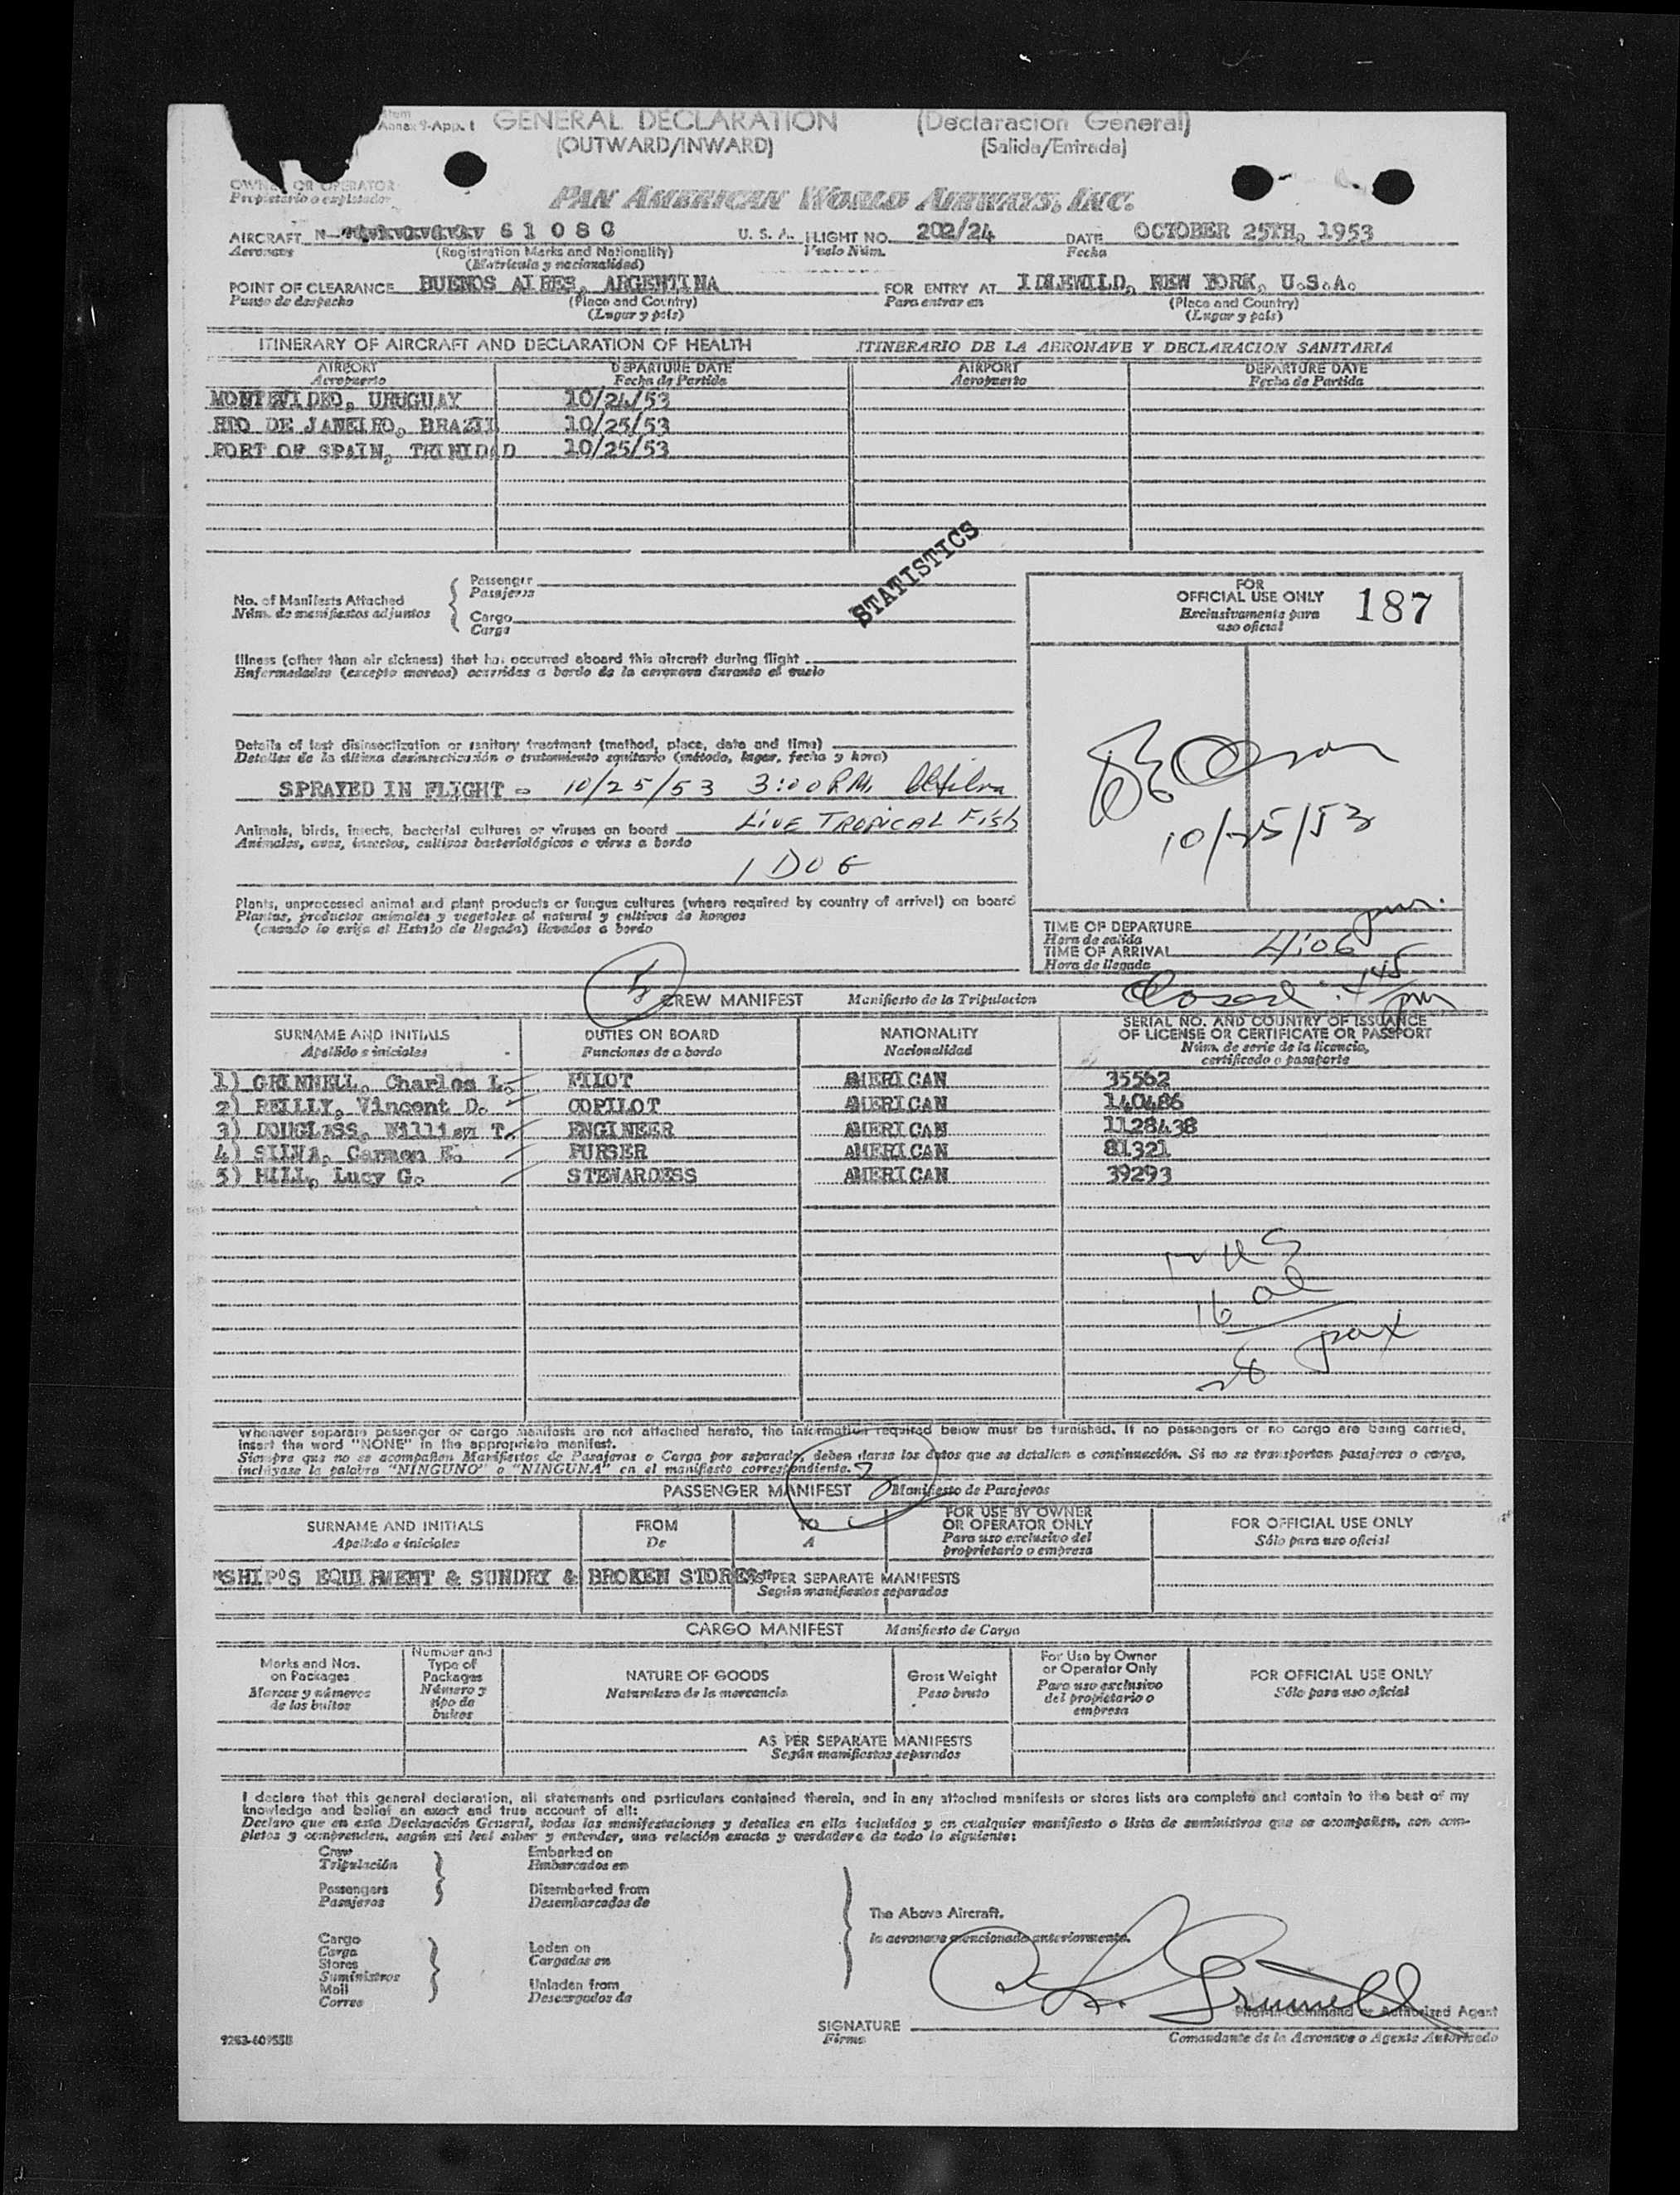 Annex 9-App. 1 GENERAL DECLARATION (Declaracion General)
(OUTWARD/INWARD) (Salida/Entrada)
OWNER OR OPERATOR
Propietario o explotador
PAN AMERICAN WORLD AIRWAYS, INC.
AIRCRAFT N- 6108C U. S. A. FLIGHT NO. 202/24 DATE OCTOBER 25TH, 1953
Aeronave (Registration Marks and Nationality) Vuelo Núm. Fecha
(Matrícula y nacionalidad)
POINT OF CLEARANCE BUENOS AIRES, ARGENTINA FOR ENTRY AT IDLEWILD, NEW YORK, U.S.A.
Punto de despacho (Place and Country) Para entrar en (Place and Country)
(Lugar y país) (Lugar y país)
ITINERARY OF AIRCRAFT AND DECLARATION OF HEALTH ITINERARIO DE LA AERONAVE Y DECLARACION SANITARIA
AIRPORT DEPARTURE DATE AIRPORT DEPARTURE DATE
Aeropuerto Fecha de Partida Aeropuerto Fecha de Partida
MONTEVIDEO, URUGUAY 10/24/53
RIO DE JANEIRO, BRAZIL 10/25/53
PORT OF SPAIN, TRINIDAD 10/25/53
STATISTICS
No. of Manifests Attached
Núm. de manifiestos adjuntos
Passenger
Pasajeros
Cargo
Carga
FOR
OFFICIAL USE ONLY 187
Exclusivamente para
uso oficial
Illness (other than air sickness) that has occurred aboard this aircraft during flight
Enfermedades (excepto mareos) ocurridas a bordo de la aeronave durante el vuelo
Details of last disinsectization or sanitary treatment (method, place, date and time)
Detalles de la última desinsectización o tratamiento sanitario (método, lugar, fecha y hora)
SPRAYED IN FLIGHT - 10/25/53 3:00 P.M.
Animals, birds, insects, bacterial cultures or viruses on board LIVE TROPICAL FISH
Animales, aves, insectos, cultivos bacteriológicos o virus a bordo
1 DOG
10/25/53
Plants, unprocessed animal and plant products or fungus cultures (where required by country of arrival) on board
Plantas, productos animales y vegetales al natural y cultivos de hongos
(cuando lo exija el Estado de llegada) llevados a bordo
TIME OF DEPARTURE
Hora de salida
TIME OF ARRIVAL 4:06 pm.
Hora de llegada
5 CREW MANIFEST Manifiesto de la Tripulacion Closed: 445 pm
SURNAME AND INITIALS DUTIES ON BOARD NATIONALITY SERIAL NO. AND COUNTRY OF ISSUANCE
OF LICENSE OR CERTIFICATE OR PASSPORT
Apellido e iniciales Funciones de a bordo Nacionalidad Núm. de serie de la licencia,
certificado o pasaporte
1) GRINNELL, Charles L. PILOT AMERICAN 35562
2) REILLY, Vincent D. COPILOT AMERICAN 140486
3) DOUGLASS, William T. ENGINEER AMERICAN 1128438
4) SILVA, Carmen E. PURSER AMERICAN 81321
5) HILL, Lucy G. STEWARDESS AMERICAN 39293
12 US
16 al
28 pax
Whenever separate passenger or cargo manifests are not attached hereto, the information required below must be furnished. If no passengers or no cargo are being carried,
insert the word "NONE" in the appropriate manifest.
Siempre que no se acompañen Manifiestos de Pasajeros o Carga por separado, deben darse los datos que se detallan a continuación. Si no se transportan pasajeros o carga,
inclúyase la palabra "NINGUNO" o "NINGUNA" en el manifiesto correspondiente.
PASSENGER MANIFEST 3 Manifiesto de Pasajeros
SURNAME AND INITIALS FROM TO FOR USE BY OWNER FOR OFFICIAL USE ONLY
OR OPERATOR ONLY
Apellido e iniciales De A Para uso exclusivo del Sólo para uso oficial
propietario o empresa
"SHIP'S EQUIPMENT & SUNDRY & BROKEN STORES" AS PER SEPARATE MANIFESTS
Según manifiestos separados
CARGO MANIFEST Manifiesto de Carga
Marks and Nos.
on Packages
Marcas y números
de los bultos
Number and
Type of
Packages
Número y
tipo de
bultos
NATURE OF GOODS
Naturaleza de la mercancía
Gross Weight
Peso bruto
For Use by Owner
or Operator Only
Para uso exclusivo
del propietario o
empresa
FOR OFFICIAL USE ONLY
Sólo para uso oficial
AS PER SEPARATE MANIFESTS
Según manifiestos separados
I declare that this general declaration, all statements and particulars contained therein, and in any attached manifests or stores lists are complete and contain to the best of my
knowledge and belief an exact and true account of all:
Declaro que en esta Declaración General, todas las manifestaciones y detalles en ella incluídos y en cualquier manifiesto o lista de suministros que se acompañen, son com-
pletos y comprenden, según mi leal saber y entender, una relación exacta y verdadera de todo lo siguiente:
Crew
Tripulación
Passengers
Pasajeros
Embarked on
Embarcados en
Disembarked from
Desembarcados de
Cargo
Carga
Stores
Suministros
Mail
Correo
Laden on
Cargados en
Unladen from
Descargados de
The Above Aircraft.
la aeronave mencionada anteriormente.
C. L. Grinnell
Pilot in Command or Authorized Agent
SIGNATURE
Firma Comandante de la Aeronave o Agente Autorizado